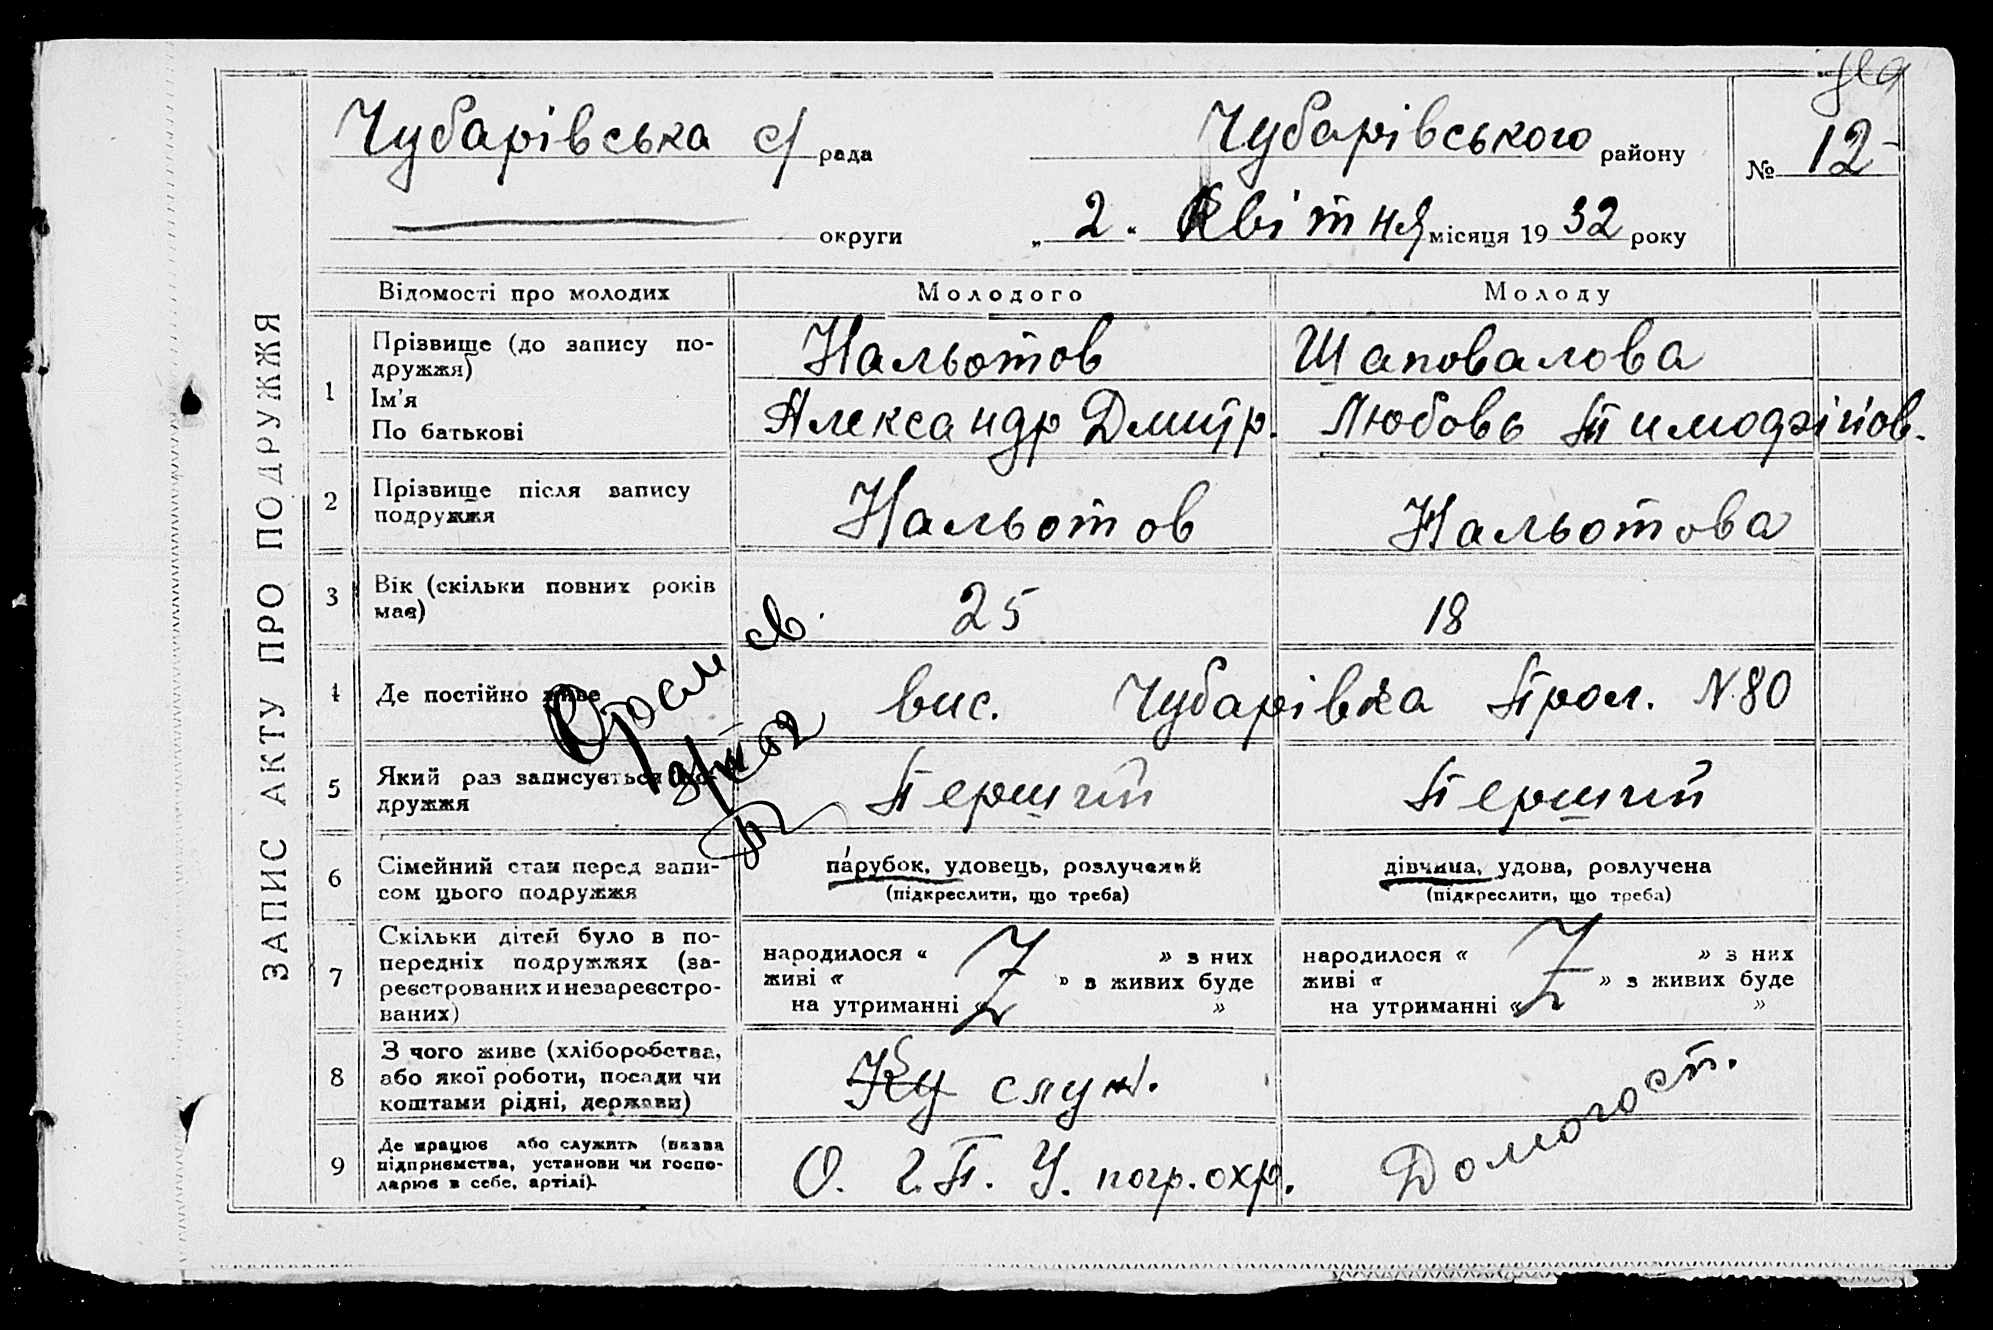 Чубарівська с/ рада Чубарівського району № 12
округи „ 2 " Квітня місяця 19 32 року
ЗАПИС АКТУ ПРО ПОДРУЖЖЯ
Відомості про молодих Молодого Молоду
1 Прізвище (до запису по-
дружжя) Нальотов Шаповалова
Ім'я
По батькові Александр Дмитр. Любовь Тимофійов.
2 Прізвище після запису
подружжя Нальотов Нальотова
3 Вік (скільки повних років
має) 25 18
4 Де постійно живе вис. Чубарівка Прол. N 80
5 Який раз записується по-
дружжя Перший Перший
6 Сімейний стан перед запи-
сом цього подружжя
парубок, удовець, розлучений
(підкреслити, що треба)
дівчина, удова, розлучена
(підкреслити, що треба)
7 Скільки дітей було в по-
передніх подружжях (за-
реєстрованих и незареєстро-
ваних)
народилося « » з них
живі « » з живих буде
на утриманні « »
народилося « » з них
живі « » з живих буде
на утриманні « »
8 З чого живе (хліборобства,
або якої роботи, посади чи
коштами рідні, держави) Ку служ.
Домогост.
9 Де працює або служить (назва
підприємства, установи чи госпо-
дарює в себе, артілі). О. Г. П. У. погр. охр.